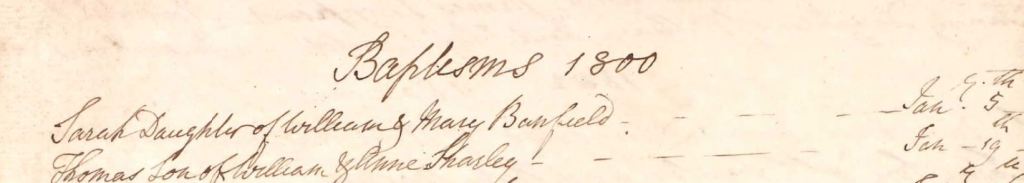 Baptisms 1800
Sarah Daughter of William & Mary Banfield - - - - Jan.y 5th
Thomas Son of William & Anne Sharley - - - - Jan - 19th